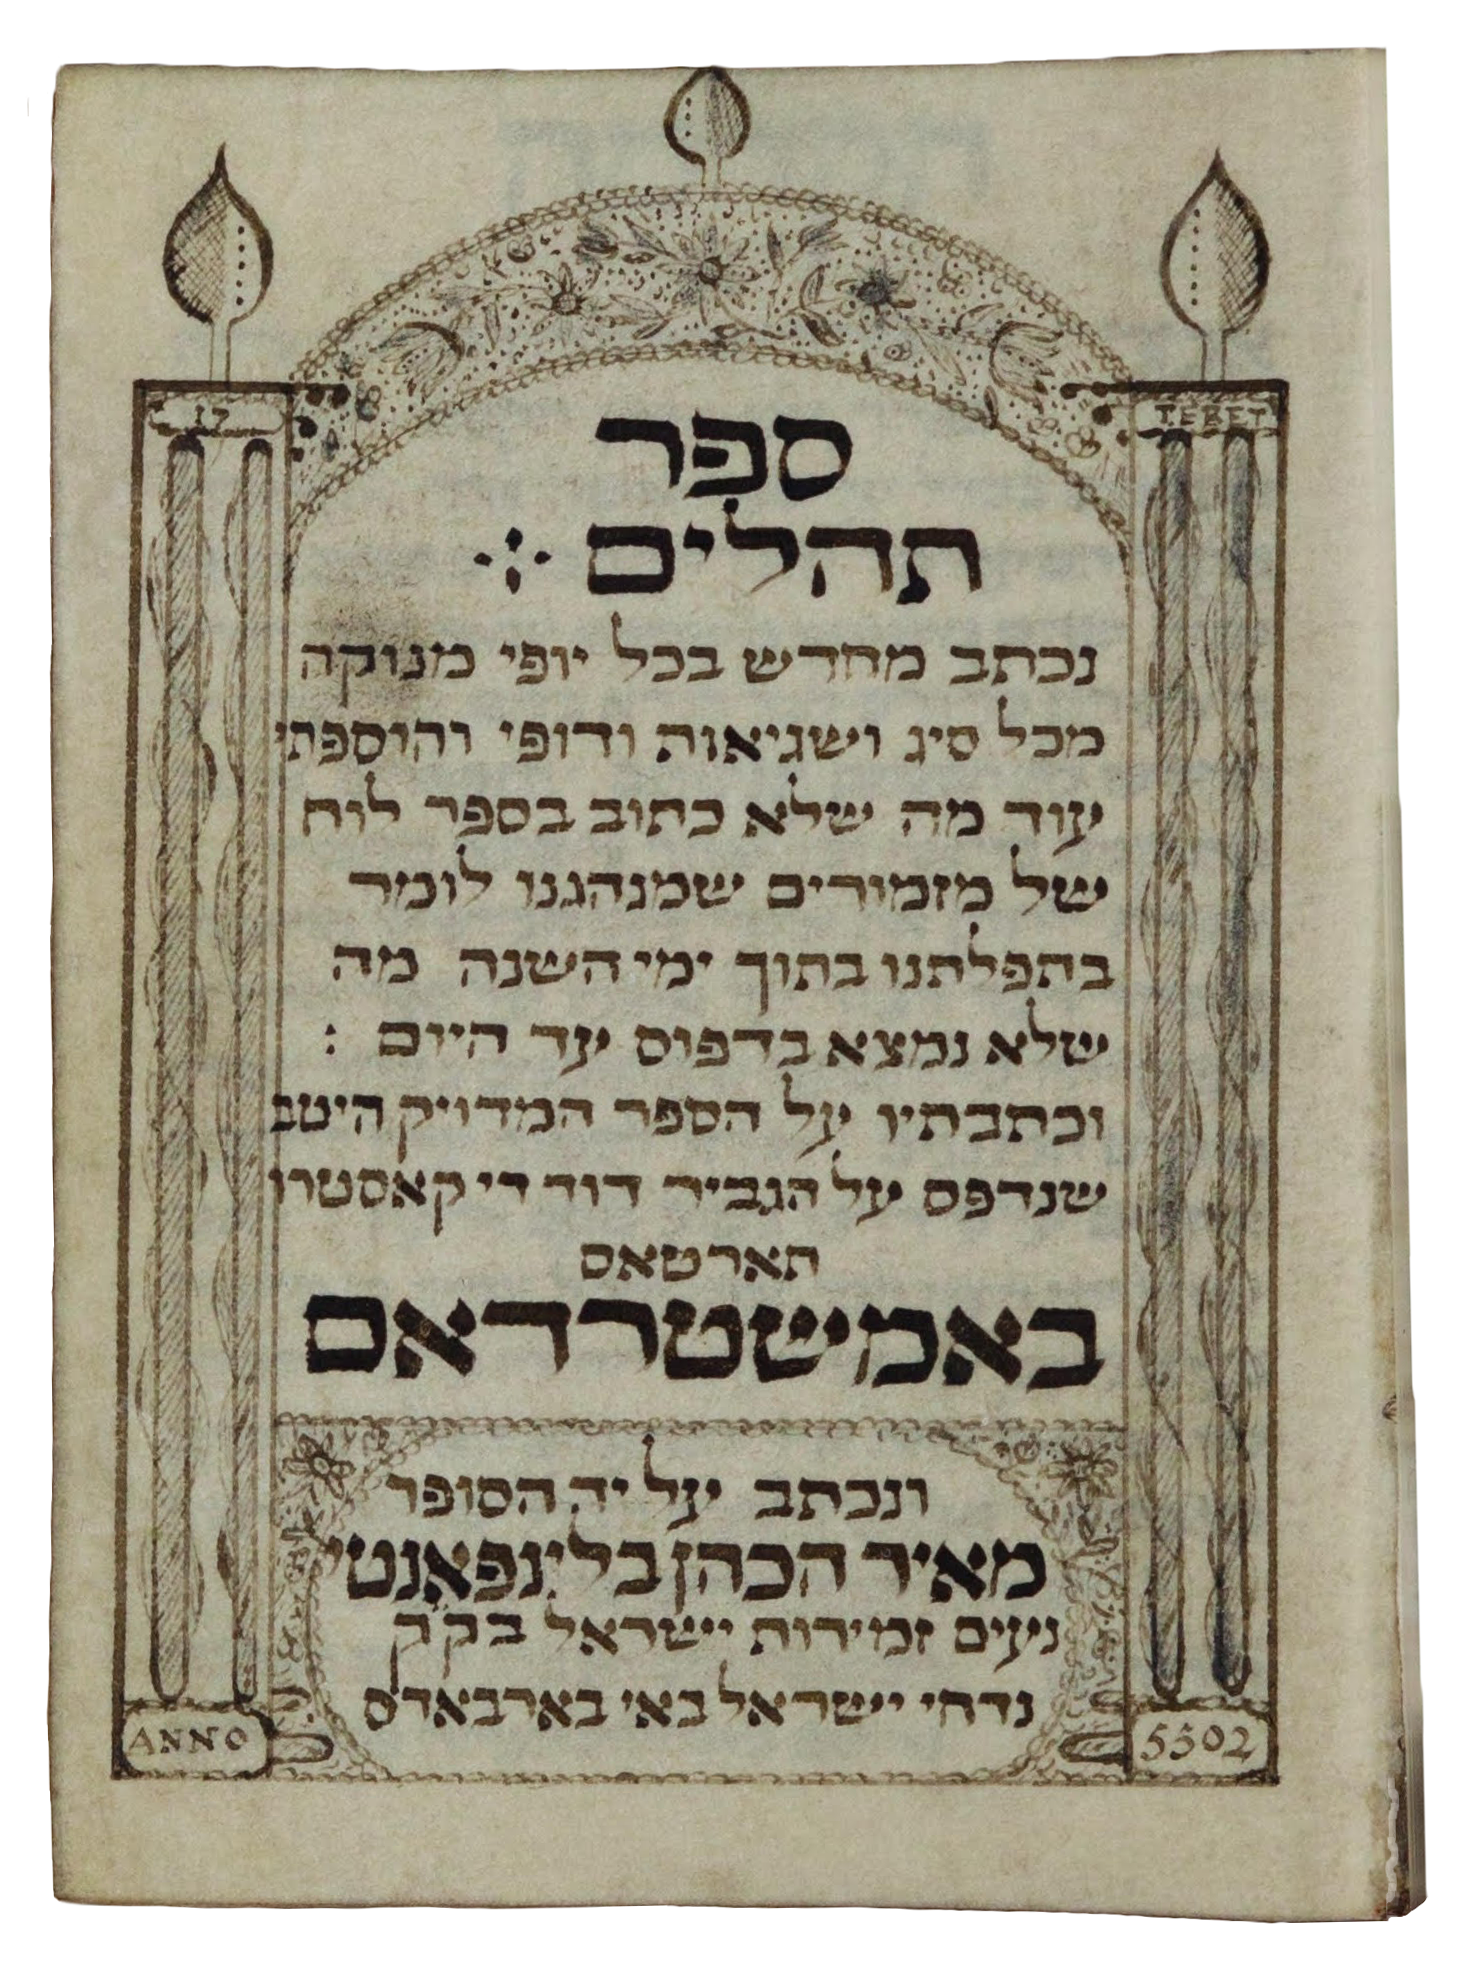 17 TEBET
ספר
תהלים
נכתב מחדש בכל יופי מנוקה
מכל סיג ושגיאות ודופי והוספתי
עוד מה שלא כתוב בספר לוח
של מזמורים שמנהגנו לומר
בתפלתנו בתוך ימי השנה מה
שלא נמצא בדפוס עד היום :
וכתבתיו על הספר המדויק היטב
שנדפס על הגביר דוד די קאסטרו
תארטאס
באמשטרדאם
ונכתב על יד הסופר
מאיר הכהן בלינפאנטי
נעים זמירות ישראל בק״ק
נדחי ישראל באי בארבאדס
ANNO 5502